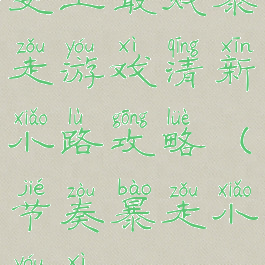 zǒu yóu xì qīng xīn
走游戏清新
xiǎo lù gōng lüè
小路攻略（
jié zòu bào zǒu xiǎo
节奏暴走小
yóu xì